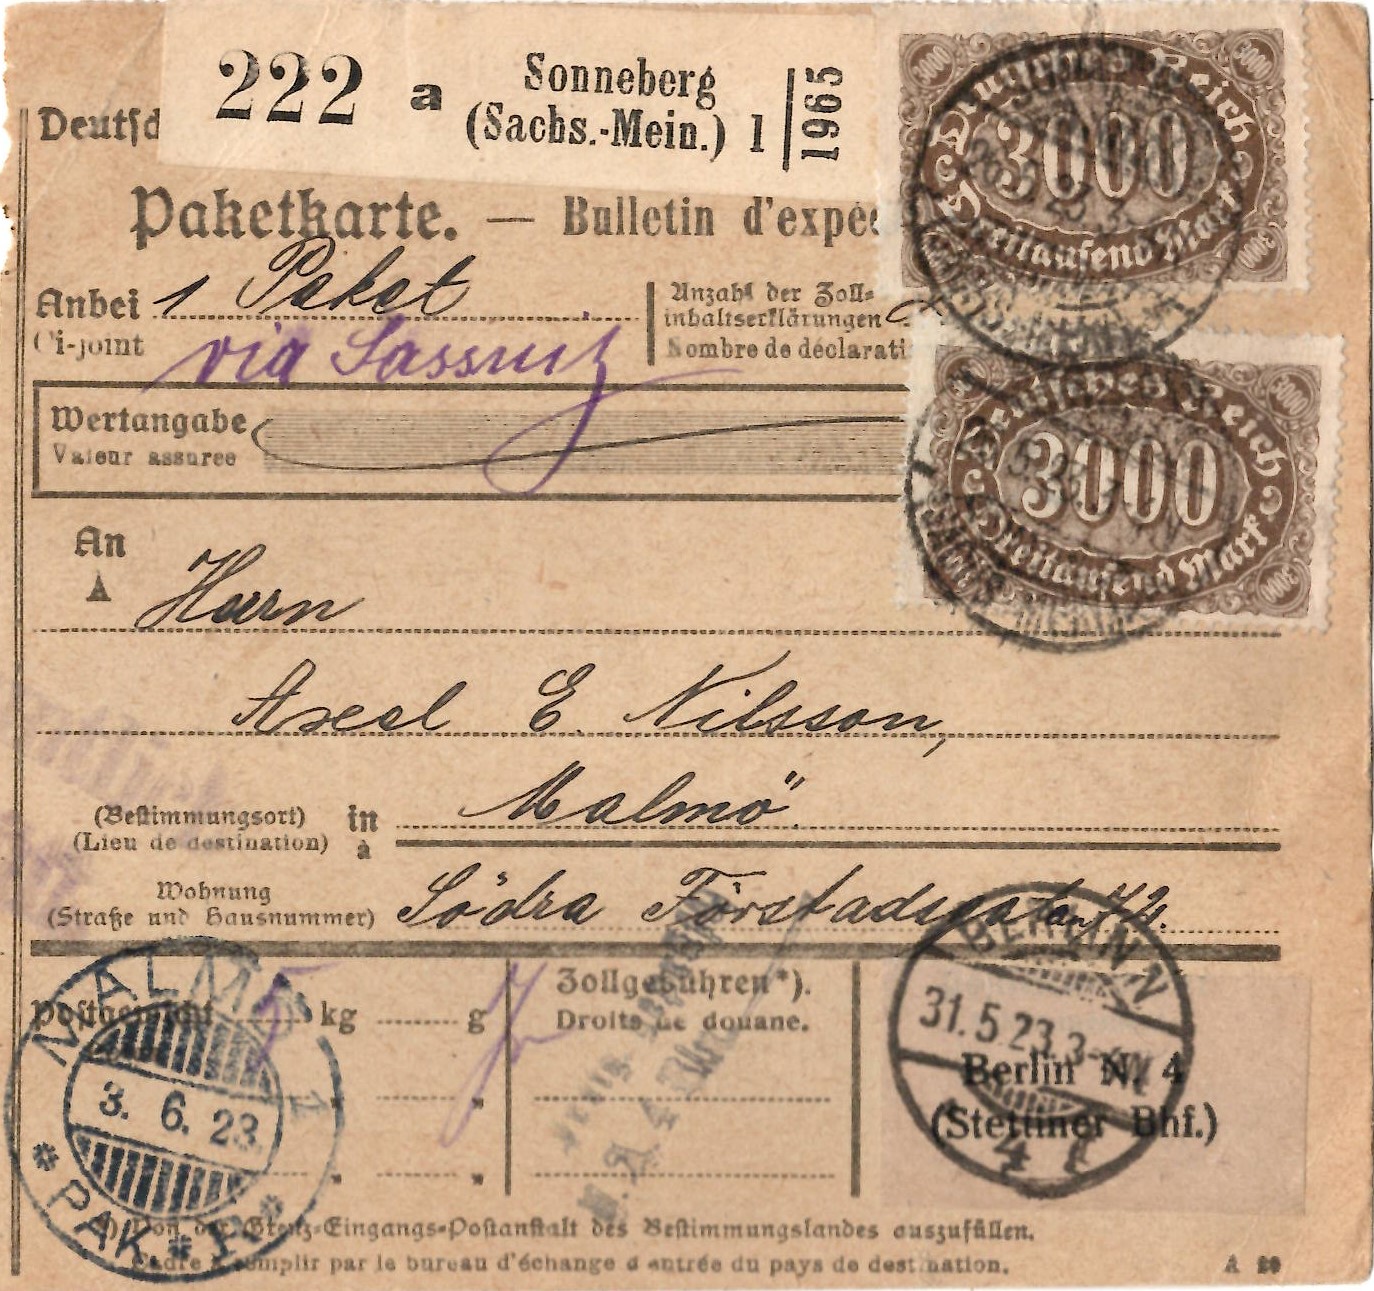 222 a Sonneberg
(Sachs.-Mein.) 1 1965
Deutsc
Deutsches Reich
3000
3000
3000
Dreitausend Mark
3000
Paketkarte. — Bulletin d'expé
Anbei 1 Paket
Ci-joint
via Sassnitz
Anzahl der Zoll-
inhaltserklärungen
Nombre de déclarati
Wertangabe
Valeur assurée
3000
Deutsches Reich
3000
Dreitausend Mark
3000
An
A
Herrn
Axel E. Nilsson,
(Bestimmungsort) in Malmö
(Lieu de destination) à
Wohnung
(Straße und Hausnummer) Södra Förstadsgatan 72.
MALMÖ 1
3. 6. 23.
* PAK *
Postgewicht 5 kg g
Zollgebühren*).
Droits de douane.
BERLIN N
31.5.23.3-
4
Berlin N. 4
(Stettiner Bhf.)
*) Von der Grenz-Eingangs-Postanstalt des Bestimmungslandes auszufüllen.
Cadre à remplir par le bureau d'échange d'entrée du pays de destination.
A 20